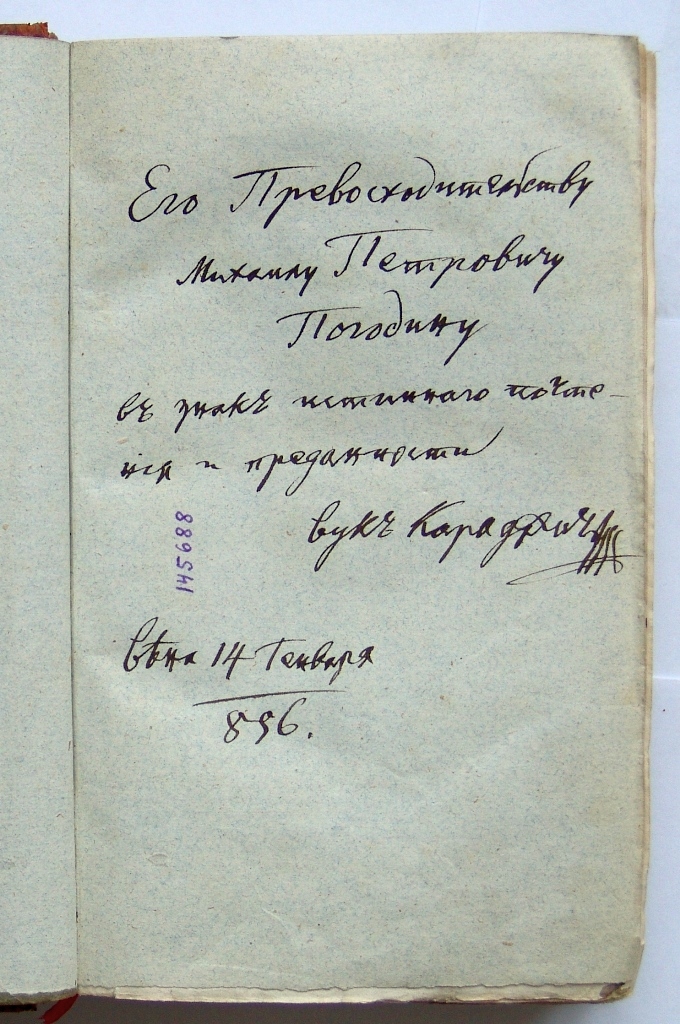 Его Превосходительству
Михаилу Петровичу
Погодину
въ знакъ истиннаго почте-
нія и преданности
Вукъ Караджичъ
145688
Вѣна 14 Генваря
856.